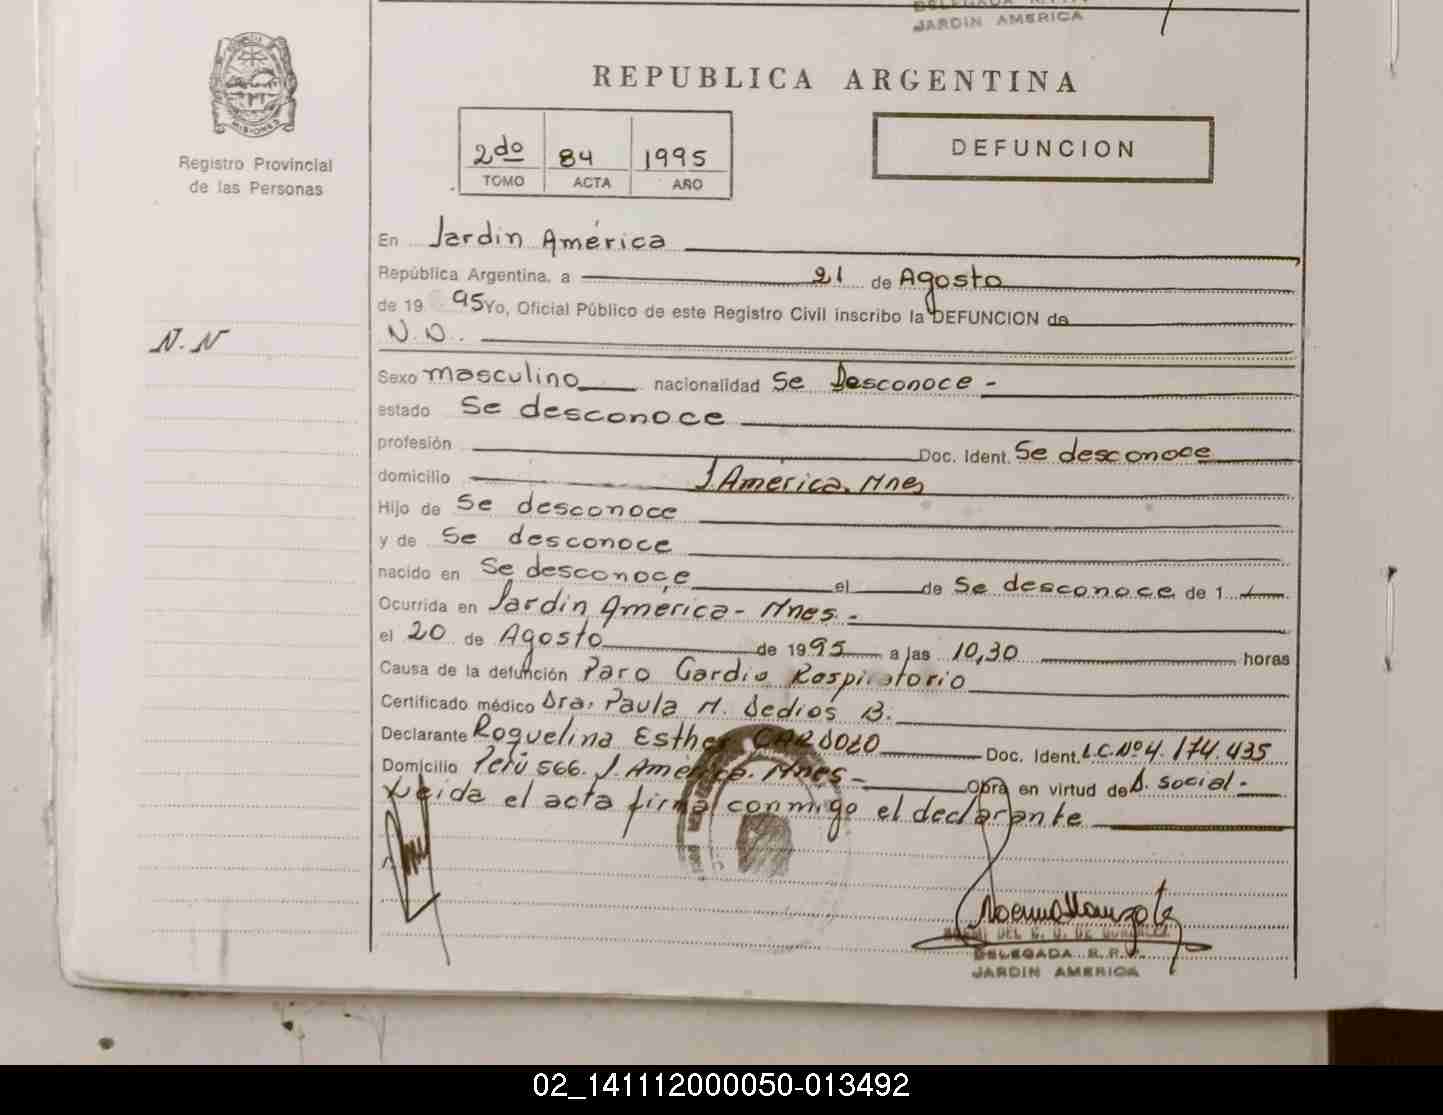 JARDIN AMERICA
MISIONES
Registro Provincial
de las Personas
N.N
REPUBLICA ARGENTINA
2do 84 1995
TOMO ACTA AÑO
DEFUNCION
En Jardin América
República Argentina, a 21 de Agosto
de 19 95 Yo, Oficial Público de este Registro Civil inscribo la DEFUNCION de
N.N.
Sexo masculino nacionalidad Se Desconoce -
estado Se desconoce
profesión Doc. Ident. Se desconoce
domicilio J América. Mnes
Hijo de Se desconoce
y de Se desconoce
nacido en Se desconoce el de Se desconoce de 1
Ocurrida en Jardin América - Mnes. -
el 20 de Agosto de 1995 a las 10,30 horas
Causa de la defunción Paro Cardio Respiratorio
Certificado médico Dra. Paula M. Dedios B.
Declarante Roquelina Esther CARDOZO Doc. Ident. L.C.Nº4.174.435
Domicilio Perú 566. J. América. Mnes - Obra en virtud de A. social -
Leida el acta firma conmigo el declarante
DELEGADA R.P.
JARDIN AMERICA
02_141112000050-013492